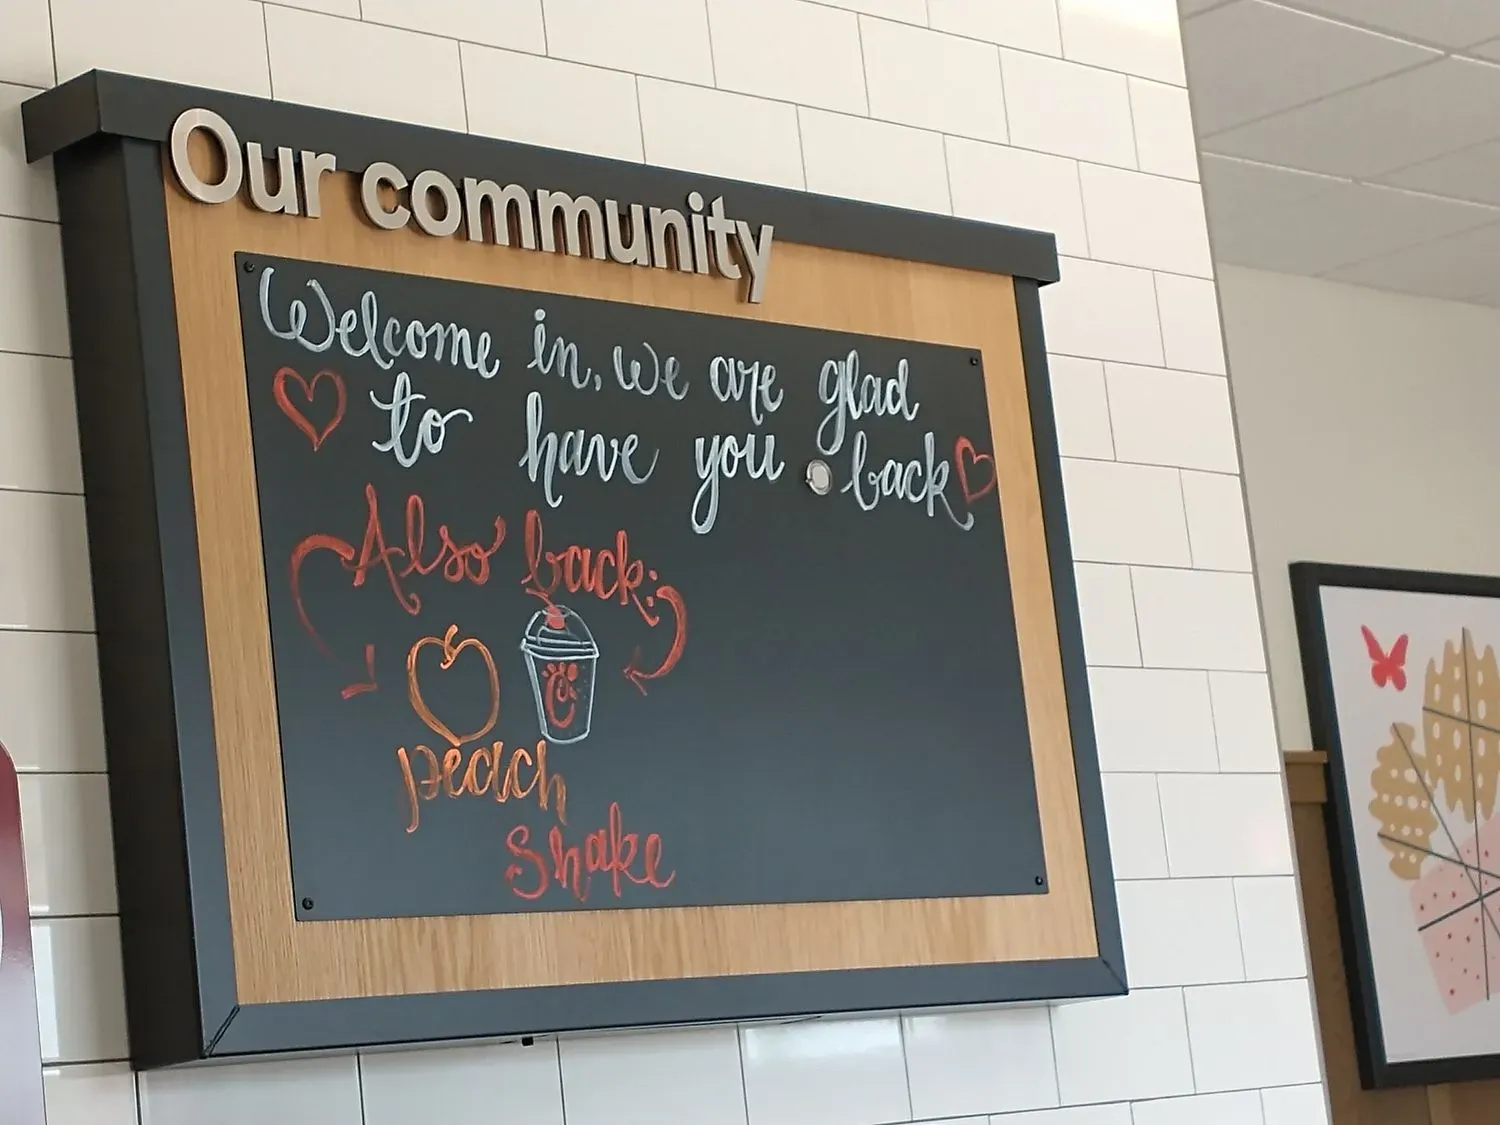 Our community
Welcome in, we are glad
to have you back
Also back:
peach
shake